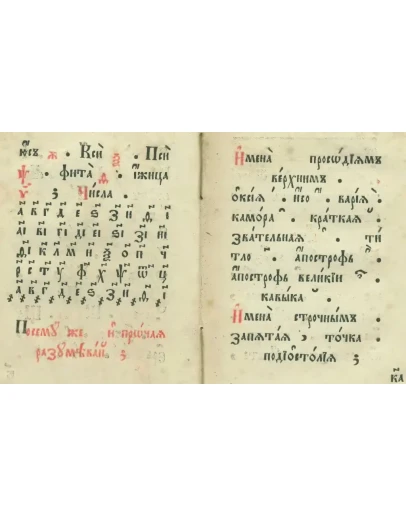 ю҆́съ ѫ · Ксѝ ѯ · Псѝ
ѱ · фита̀ ѳ · и҆́жица
ѵ · Чи́сла ·
а҃ в҃ г҃ д҃ є҃ ѕ҃ з҃ и҃ ѳ҃ і҃
а҃і в҃і г҃і д҃і є҃і ѕ҃і з҃і и҃і ѳ҃і
к҃ л҃ м҃ н҃ ѯ҃ о҃ п҃ ч҃
р҃ с҃ т҃ у҃ ф҃ х҃ ѱ҃ ѿ҃ ц҃
҂а҃ ҂в҃ ҂г҃ ҂д҃ ҂є҃ ҂ѕ҃ ҂з҃ ҂и҃ ҂ѳ҃ ҂і҃
Посему же, и҆ прѡ́чая
разꙋмѣва́й
И҆мена̀ просѡді́ямъ
ве́рхнимъ ·
о҆ксі́я · и҆со · варі́я
камора · краткая
Звательная · ти
тло · а҆по́строфъ
а҆по́строфъ вели́кій
кавы́ка
И҆мена̀ строчнымъ ·
Запята́я , то́чка ·
подїѡсто́лія
ка